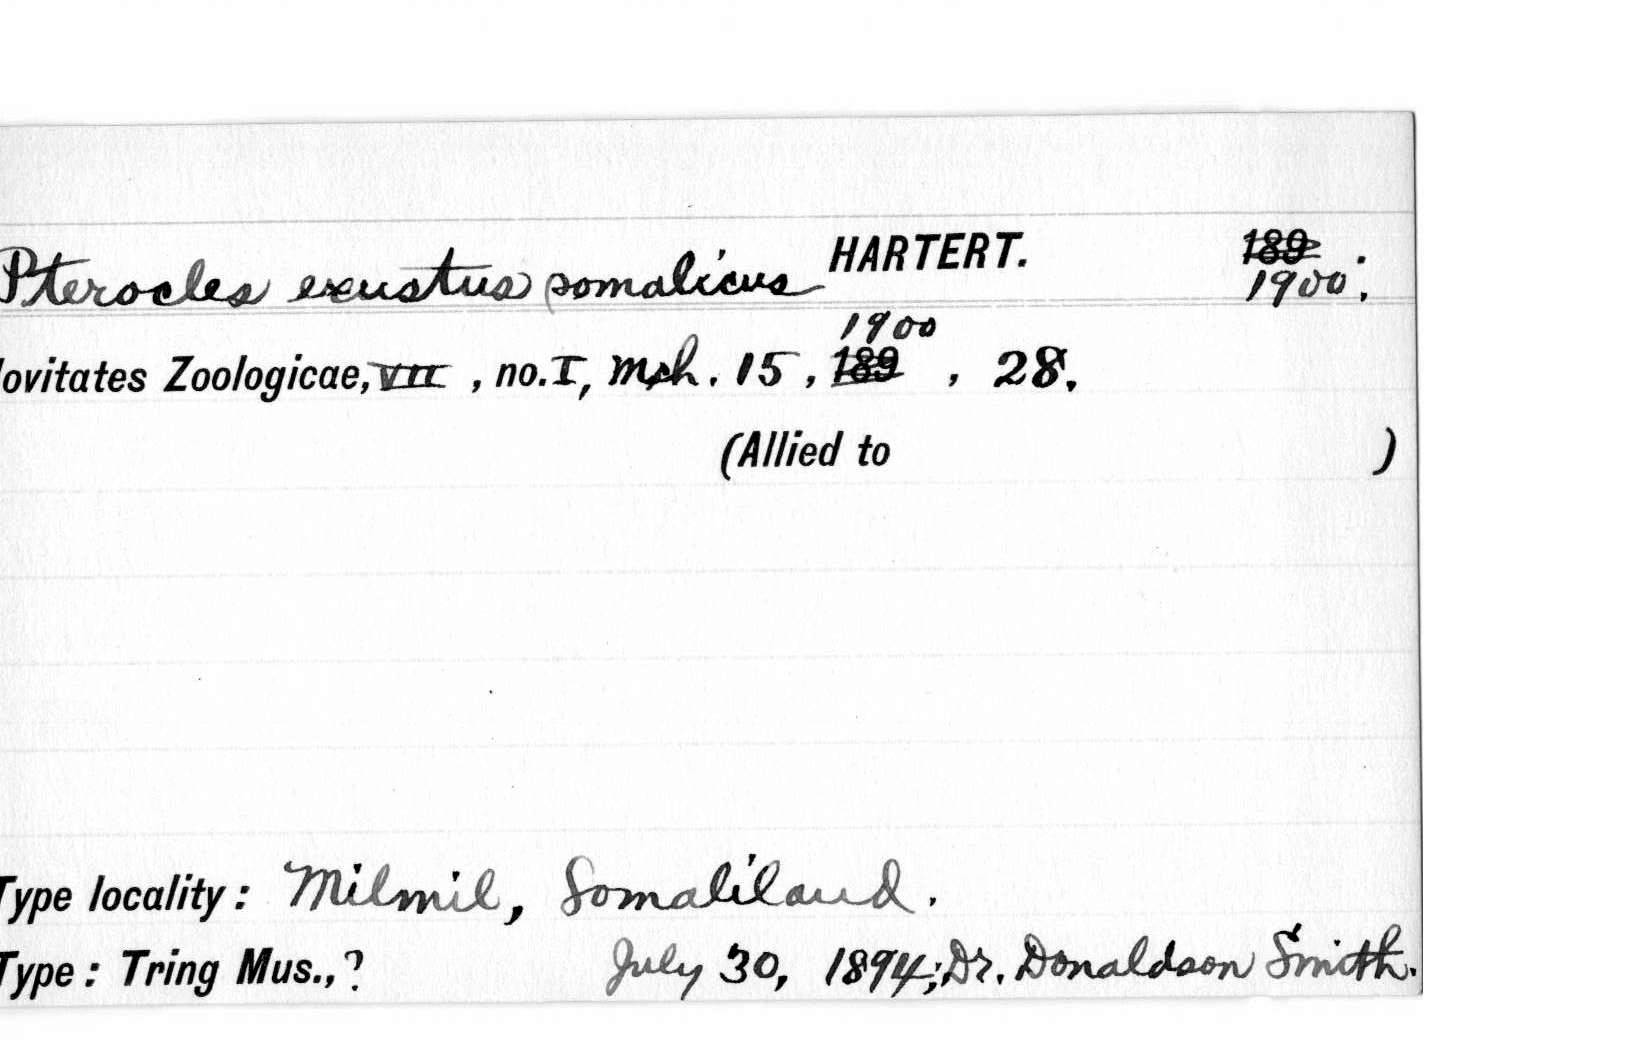 Pterocles exustus somalicus HARTERT. 189 .
1900.
1900
ovitates Zoologicae, VII , no. I, Mch. 15 , 189 , 28.
(Allied to )
Type locality: Milmil, Somaliland.
Type: Tring Mus., ? July 30, 1894; Dr. Donaldson Smith.